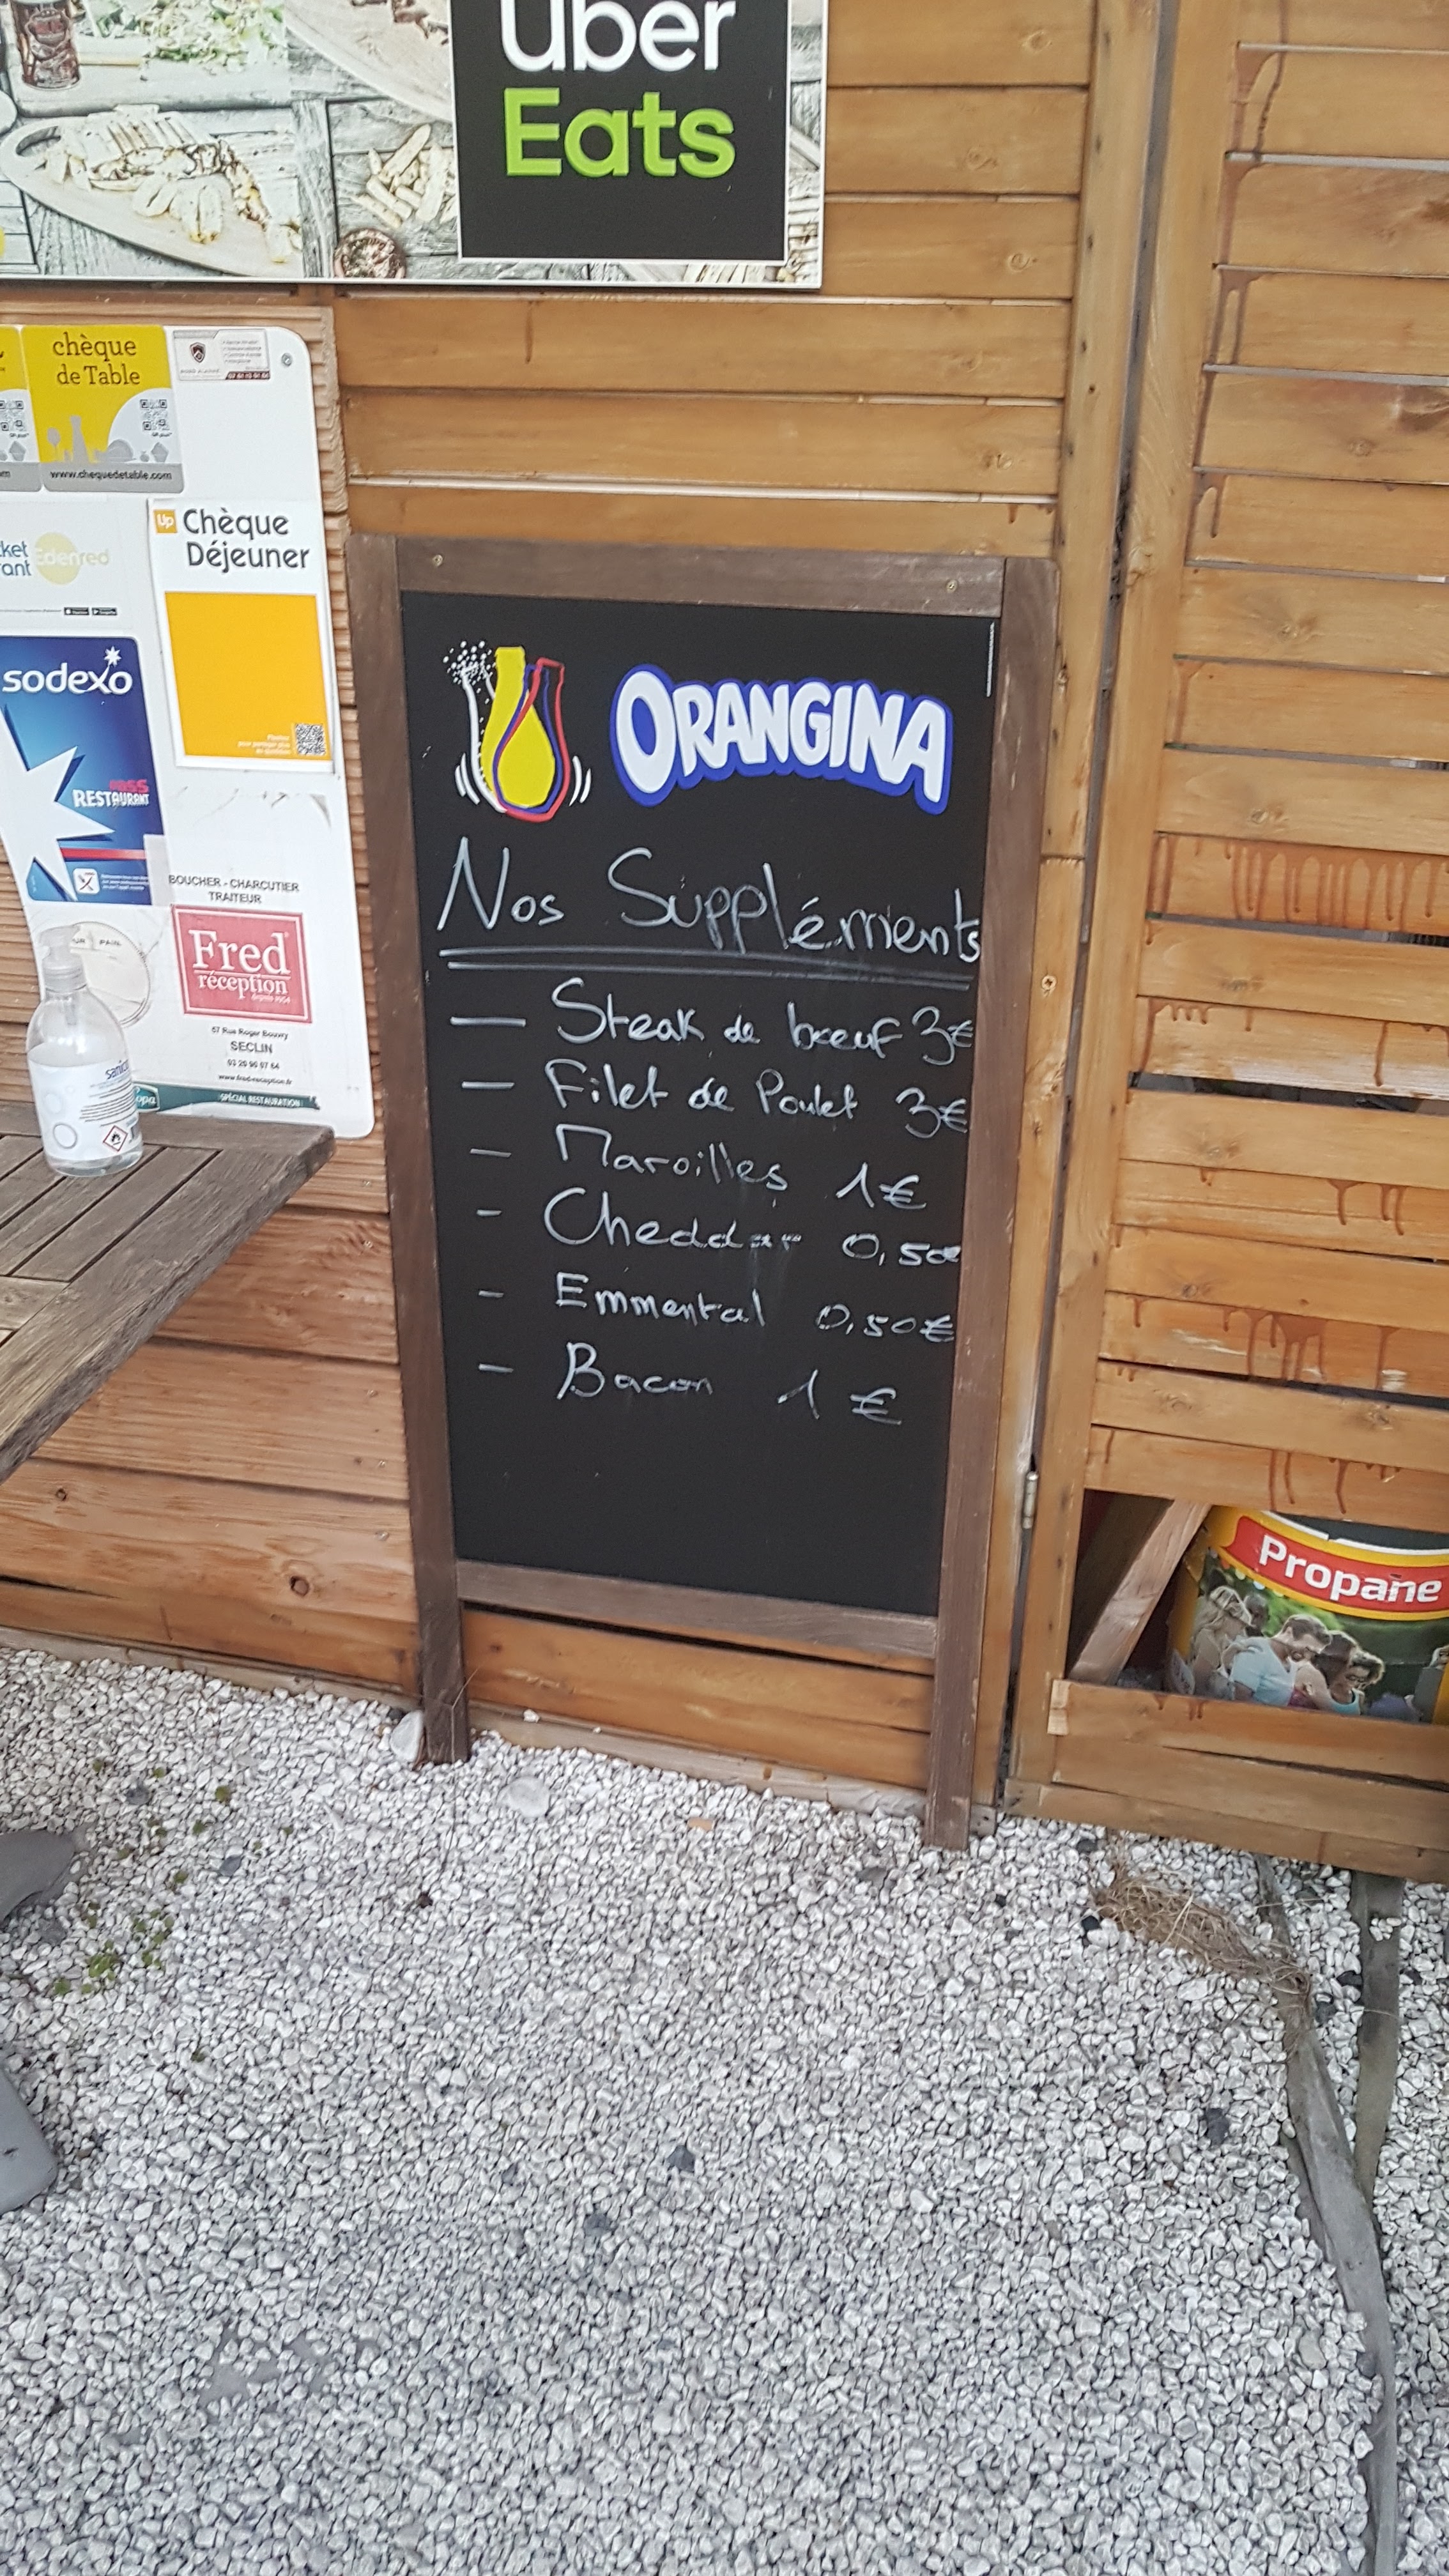 Uber
Eats
chèque
de Table
www.chequedetable.com
Up Chèque
Déjeuner
Edenred
sodexo
PASS
RESTAURANT
BOUCHER - CHARCUTIER
TRAITEUR
Fred
réception
depuis 1954
57 Rue Roger Bouvry
SECLIN
03 20 90 07 64
www.fred-reception.fr
SPÉCIAL RESTAURATION
ORANGINA
Nos Suppléments
— Steak de bœuf 3€
— Filet de Poulet 3€
— Maroilles 1€
- Cheddar 0,50€
- Emmental 0,50€
- Bacon 1€
Propane